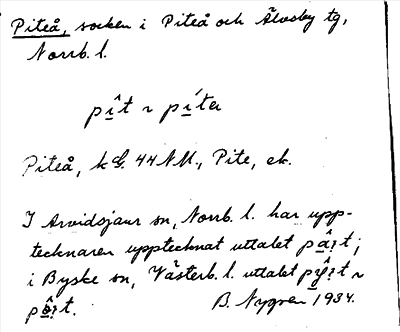 Piteå, socken i Piteå och Älvsby tg,
Norrb. l.
pî̲t ~ pí̲ta
Piteå, k G. 44 NM., Pite, ek.
I Arvidsjaur sn, Norrb. l. har upp-
tecknaren upptecknat uttalet pâ̲i̯t;
i Byske sn, Västerb. l. uttalet pŷ̲i̯t ~
t. B. Nygren 1934.